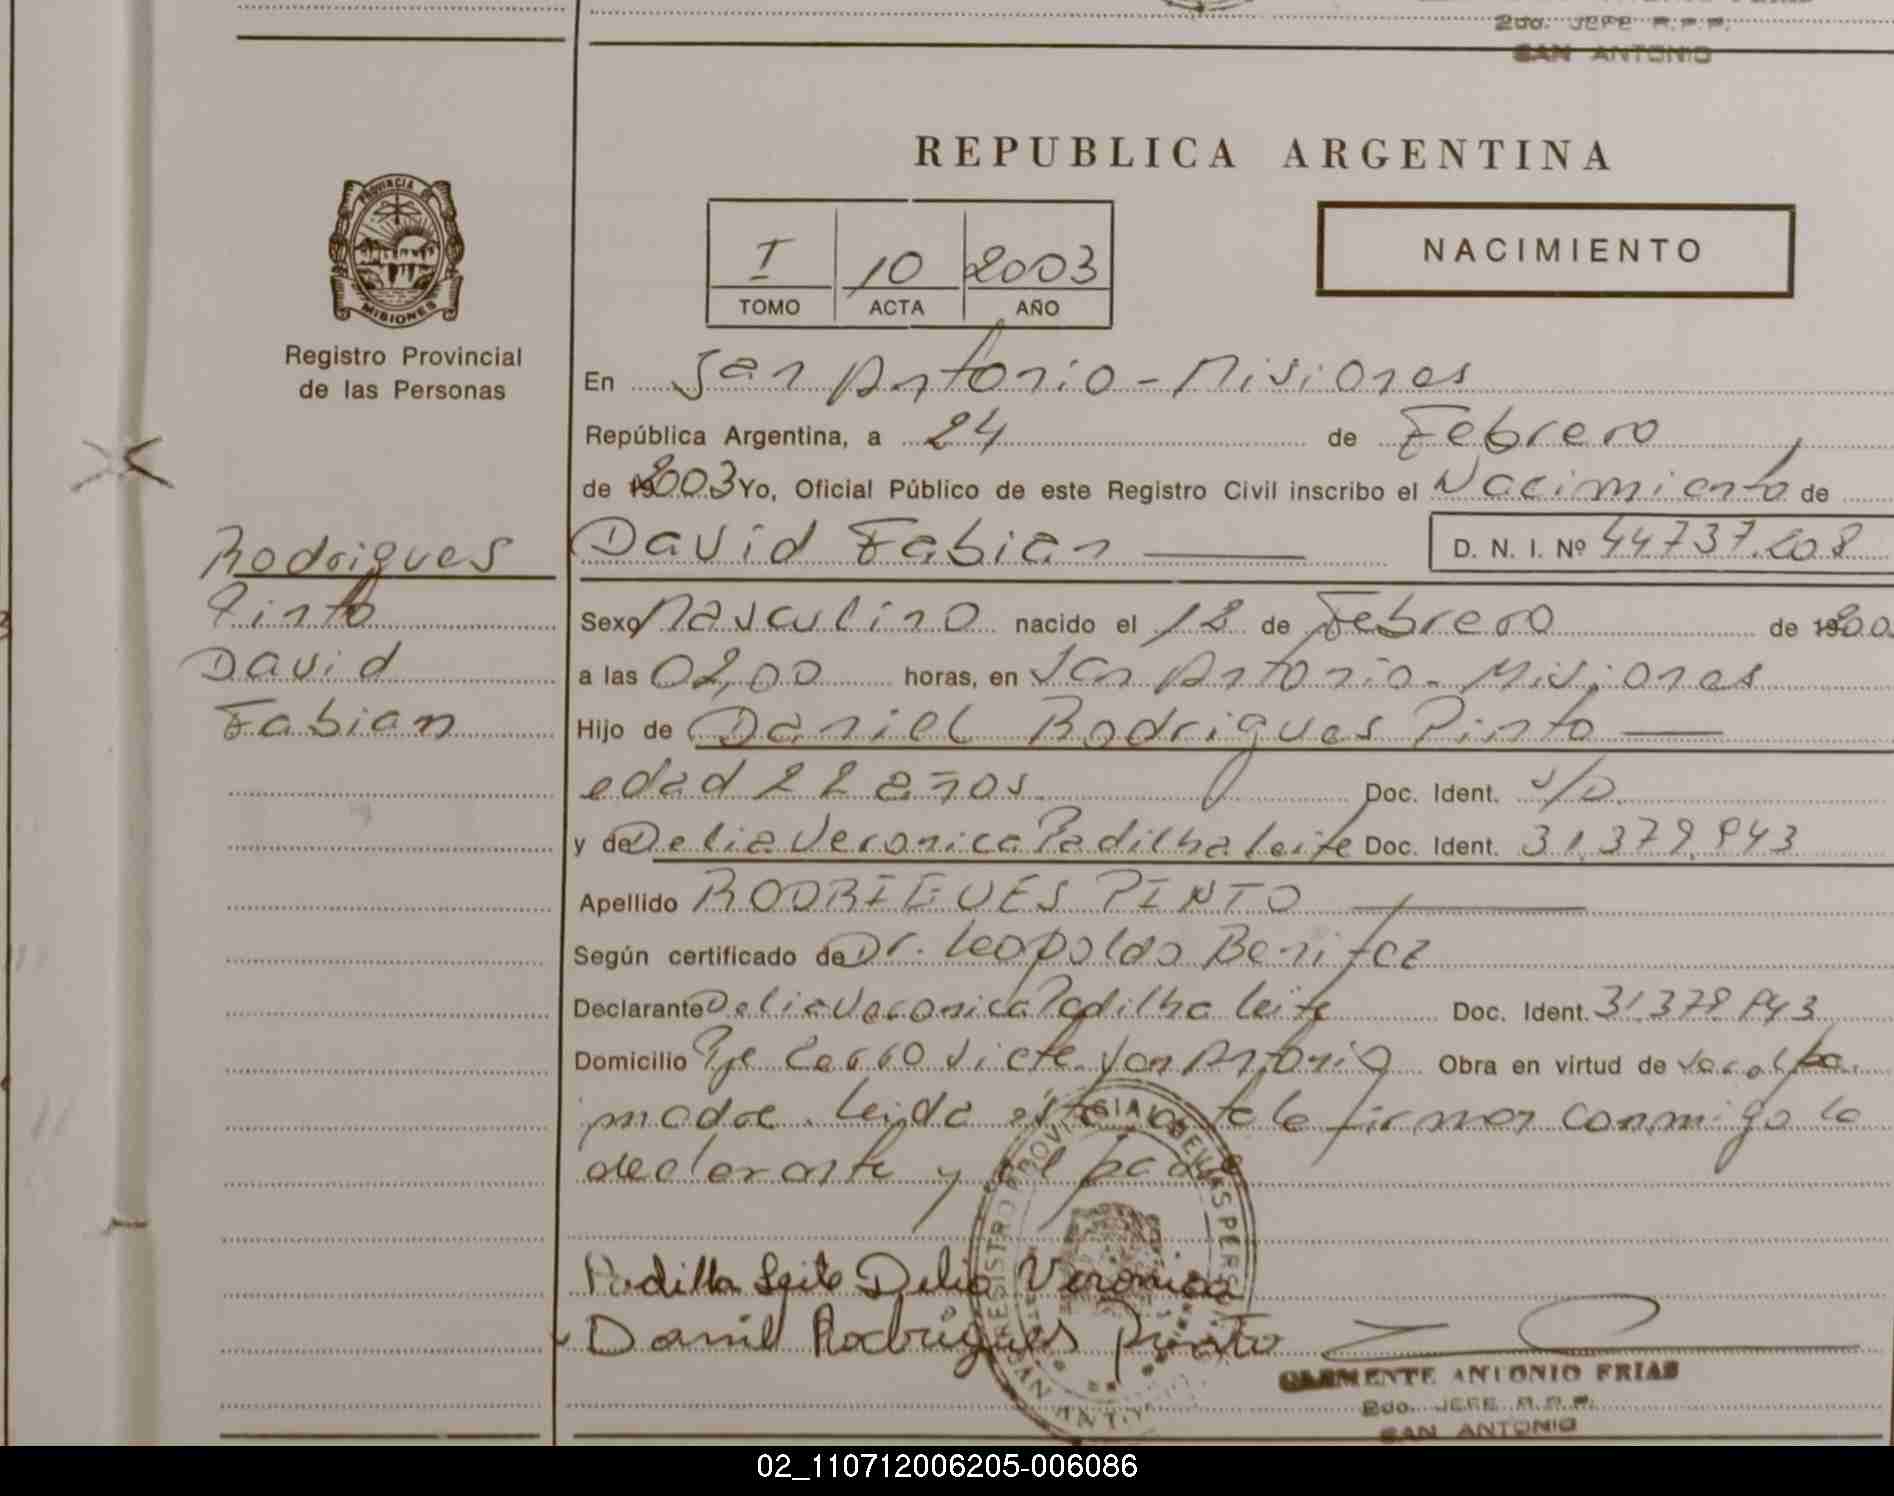 2do. JEFE R.P.P.
SAN ANTONIO
REPUBLICA ARGENTINA
PROVINCIA DE MISIONES
Registro Provincial
de las Personas
I 10 2003
TOMO ACTA AÑO
NACIMIENTO
En San Antonio - Misiones
República Argentina, a 24 de Febrero
de 2003 Yo, Oficial Público de este Registro Civil inscribo el Nacimiento de
David Fabian D. N. I. Nº 44737.208
Rodrigues
Pinto
David
Fabian
Sexo Masculino nacido el 12 de Febrero de 19 200
a las 02,00 horas, en San Antonio - Misiones
Hijo de Daniel Rodrigues Pinto
edad 22 años Doc. Ident. S/D.
y de Delia Veronica Padilha Leite Doc. Ident. 31.379.943
Apellido RODRIGUES PINTO
Según certificado de Dr. Leopoldo Benitez
Declarante Delia Veronica Padilha Leite Doc. Ident. 31.379.943
Domicilio Pje Cerro Siete San Antonio Obra en virtud de ser la
madre. Leida esta acta la firman conmigo la
declarante y el padre
Padilla Leite Delia Veronica
Daniel Rodrigues Pinto
REGISTRO PROVINCIAL DE LAS PERS
SAN ANT
CLEMENTE ANTONIO FRIAS
2do. JEFE R.P.P.
SAN ANTONIO
02_110712006205-006086